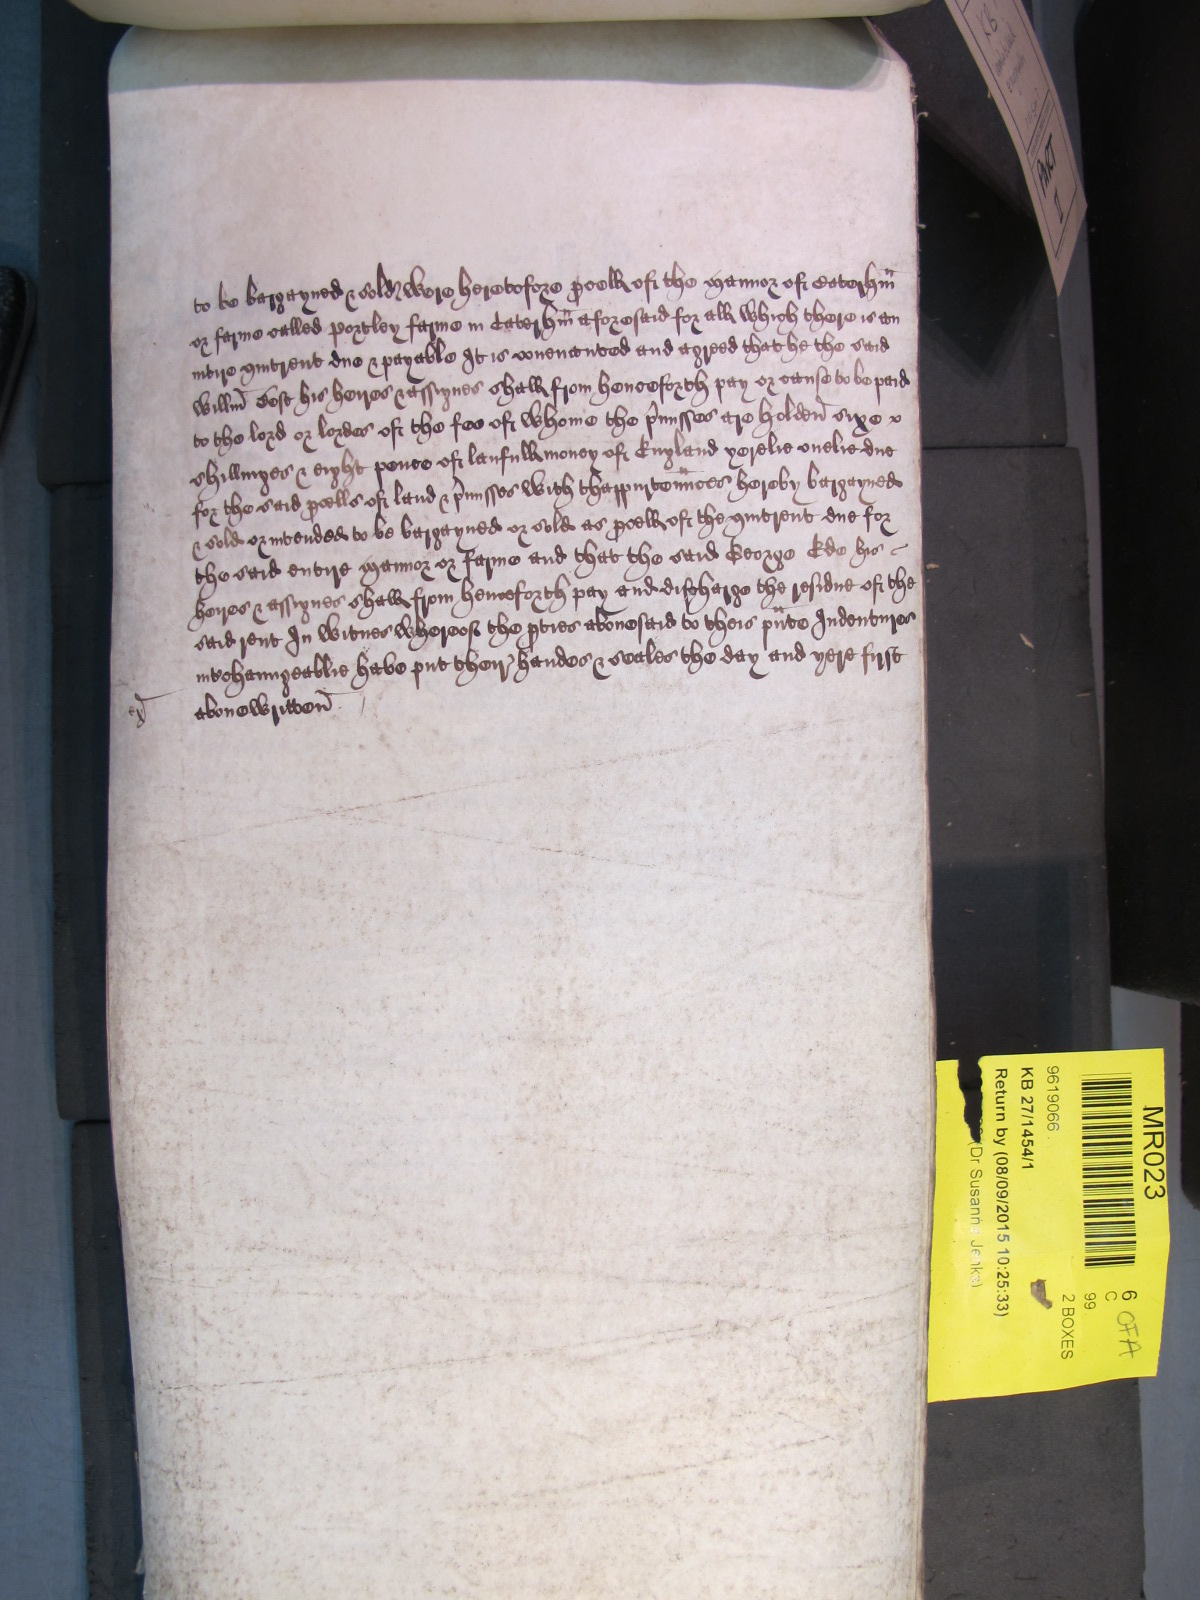 to be bargayned & sold were heretofore pcell of the mannor of Caterhm
or farme called portley farme in Caterhm aforesaid for all which there is an
intire quitrent due & payable It is couenanted and agreed that he the said
Willm his heires & assignes shall from henceforth pay or cause to be paid
to the lord or lordes of the fee of whome the pmisses are holden sixe
shillinges & eight pence of laufull money of England yerelie onelie due
for the said pcells of land & pmisses with thappurtennces hereby bargayned
& sold or intended to be bargayned or sold as pcell of the quitrent due for
the said entire mannor or farme and that the said George Ede his
heires & assignes shall from henceforth pay and discharge the residue of the
said rent In witnes whereof the pties abouesaid to theis pnte Indentures
intchaungeablie have put their handes & seales the day and yere first
abouewritten
KB
PART
II
MR023
9619066
KB 27/1454/1
Return by (08/09/2015 10:25:33)
(Dr Susanne Jenks)
6
C
99
2 BOXES
OFA